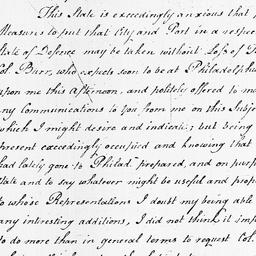 This State is exceedingly anxious that
Measures to put that City and Port in a respec
State of Defence may be taken without Loss of T
Col. Burr, who expects soon to be at Philadelphia
upon me this afternoon, and politely offered to ma
my Communications to You from me on this Subje
which I might desire and indicate; but being
present exceedingly occupied and knowing that
had lately gone to Philad. prepared, and on purp
State and to say whatever might be useful and prop
to whose Representations I doubt my being able
any interesting additions, I did not think it imp
to do more than in general terms to request Col.